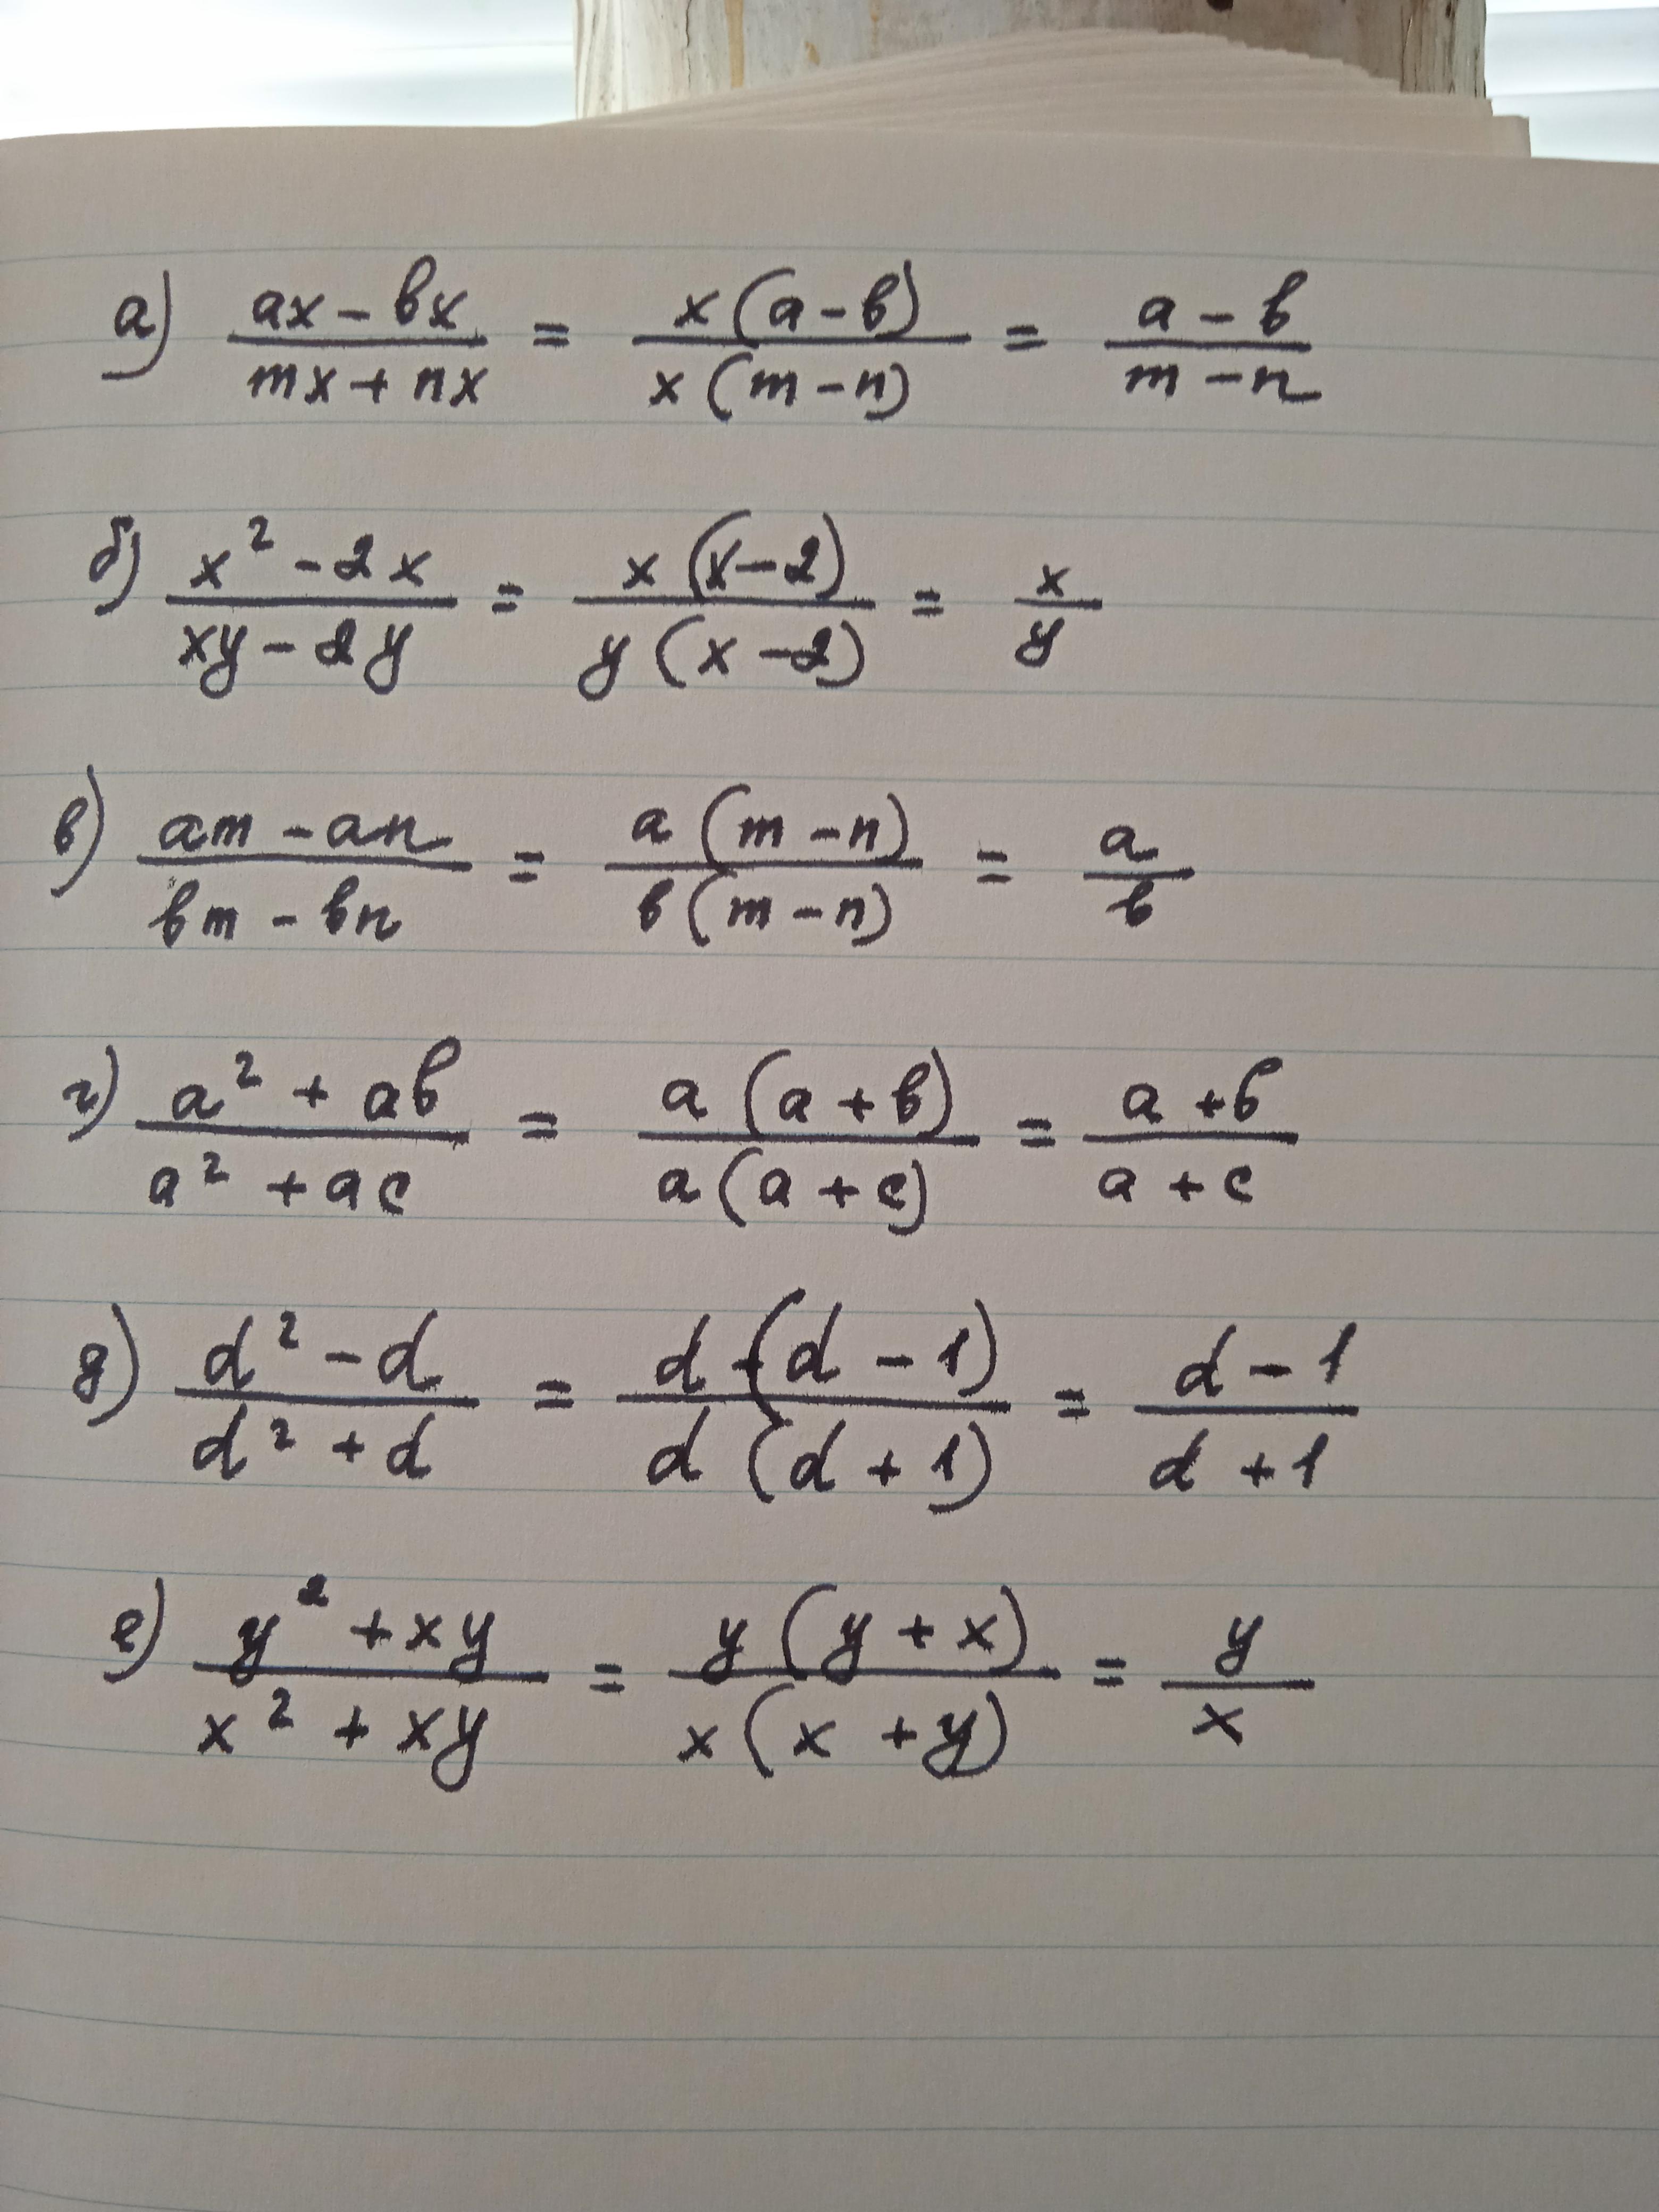 а) (ax - bx)/(mx + nx) = x(a - b)/x(m - n) = (a - b)/(m - n)
б) (x² - 2x)/(xy - 2y) = x(x - 2)/y(x - 2) = x/y
в) (am - an)/(bm - bn) = a(m - n)/b(m - n) = a/b
г) (a² + ab)/(a² + ac) = a(a + b)/a(a + c) = (a + b)/(a + c)
д) (d² - d)/(d² + d) = d(d - 1)/d(d + 1) = (d - 1)/(d + 1)
е) (y² + xy)/(x² + xy) = y(y + x)/x(x + y) = y/x